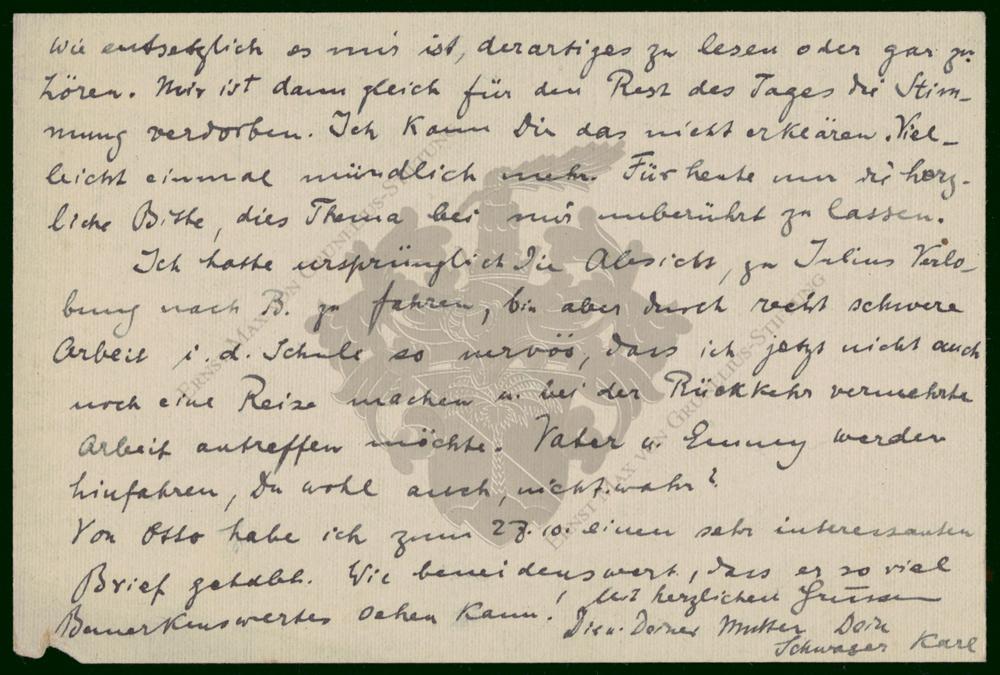 wie entsetzlich es mir ist, derartiges zu lesen oder gar zu
hören. Mir ist dann gleich für den Rest des Tages die Stim-
mung verdorben. Ich kann Dir das nicht erklären. Viel-
leicht einmal mündlich mehr. Für heute nur die herz-
liche Bitte, dies Thema bei mir unberührt zu lassen.
Ich hatte ursprünglich die Absicht, zu Julius Verlo-
bung nach B. zu fahren, bin aber durch recht schwere
Arbeit i. d. Schule so nervös, dass ich jetzt nicht auch
noch eine Reise machen u. bei der Rückkehr vermehrte
Arbeit antreffen möchte. Vater u. Emmy werden
hinfahren, Du wohl auch, nicht wahr?
Von Otto habe ich zum 27.10. einen sehr interessanten
Brief gehabt. Wie beneidenswert, dass er so viel
Bemerkenswertes sehen kann! Mit herzlichen Grüssen
Dir u. Deiner Mutter Dein
Schwager Karl
ERNST MAX VON GRUNELIUS-STIFTUNG
ERNST MAX VON GRUNELIUS-STIFTUNG